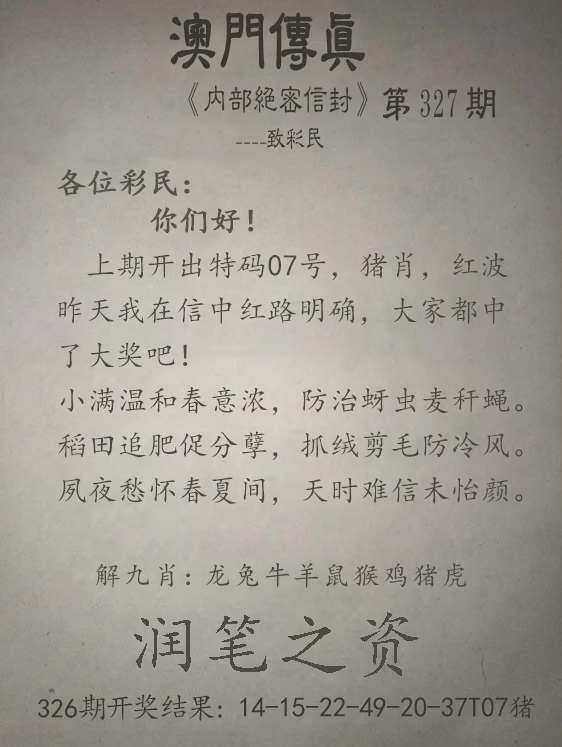 澳門傳眞
《内部絕密信封》第327期
----致彩民
各位彩民：
你们好！
上期开出特码07号，猪肖，红波
昨天我在信中红路明确，大家都中
了大奖吧！
小满温和春意浓，防治蚜虫麦秆蝇。
稻田追肥促分孽，抓绒剪毛防冷风。
夙夜愁怀春夏间，天时难信未怡颜。
解九肖：龙兔牛羊鼠猴鸡猪虎
润笔之资
326期开奖结果：14-15-22-49-20-37T07猪